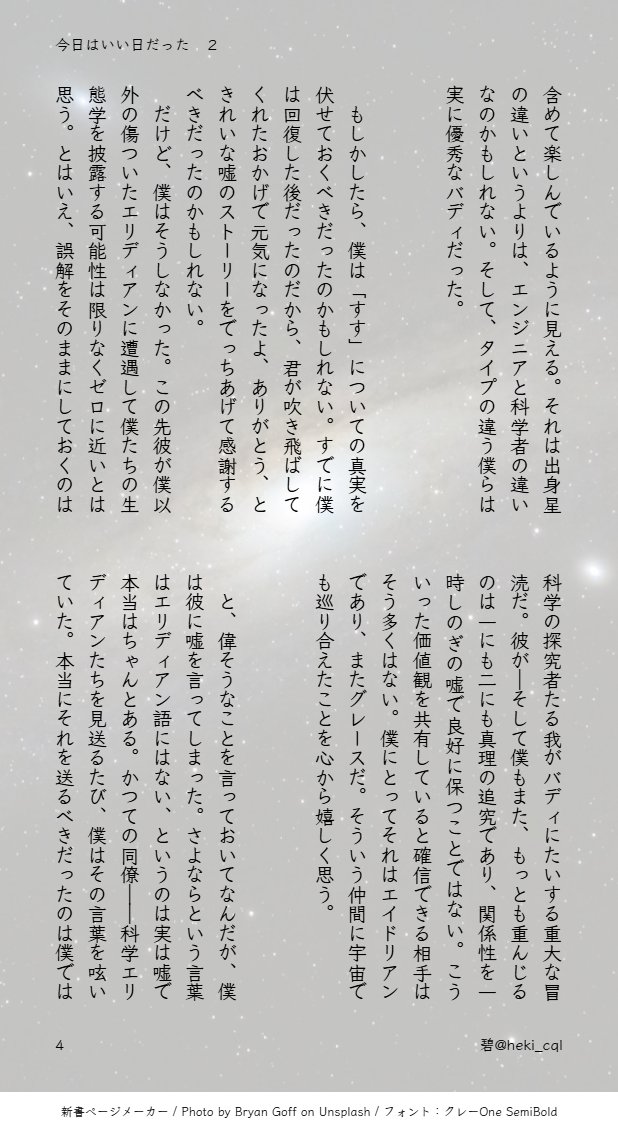 今日はいい日だった　2
含めて楽しんでいるように見える。それは出身星
の違いというよりは、エンジニアと科学者の違い
なのかもしれない。そして、タイプの違う僕らは
実に優秀なバディだった。
もしかしたら、僕は「すす」についての真実を
伏せておくべきだったのかもしれない。すでに僕
は回復した後だったのだから、君が吹き飛ばして
くれたおかげで元気になったよ、ありがとう、と
きれいな嘘のストーリーをでっちあげて感謝する
べきだったのかもしれない。
だけど、僕はそうしなかった。この先彼が僕以
外の傷ついたエリディアンに遭遇して僕たちの生
態学を披露する可能性は限りなくゼロに近いとは
思う。とはいえ、誤解をそのままにしておくのは
科学の探究者たる我がバディにたいする重大な冒
涜だ。彼が―そして僕もまた、もっとも重んじる
のは一にも二にも真理の追究であり、関係性を一
時しのぎの嘘で良好に保つことではない。こう
いった価値観を共有していると確信できる相手は
そう多くはない。僕にとってそれはエイドリアン
であり、またグレースだ。そういう仲間に宇宙で
も巡り合えたことを心から嬉しく思う。
と、偉そうなことを言っておいてなんだが、僕
は彼に嘘を言ってしまった。さよならという言葉
はエリディアン語にはない、というのは実は嘘で
本当はちゃんとある。かつての同僚――科学エリ
ディアンたちを見送るたび、僕はその言葉を呟い
ていた。本当にそれを送るべきだったのは僕では
4
碧@heki_cql
新書ページメーカー / Photo by Bryan Goff on Unsplash / フォント：クレーOne SemiBold